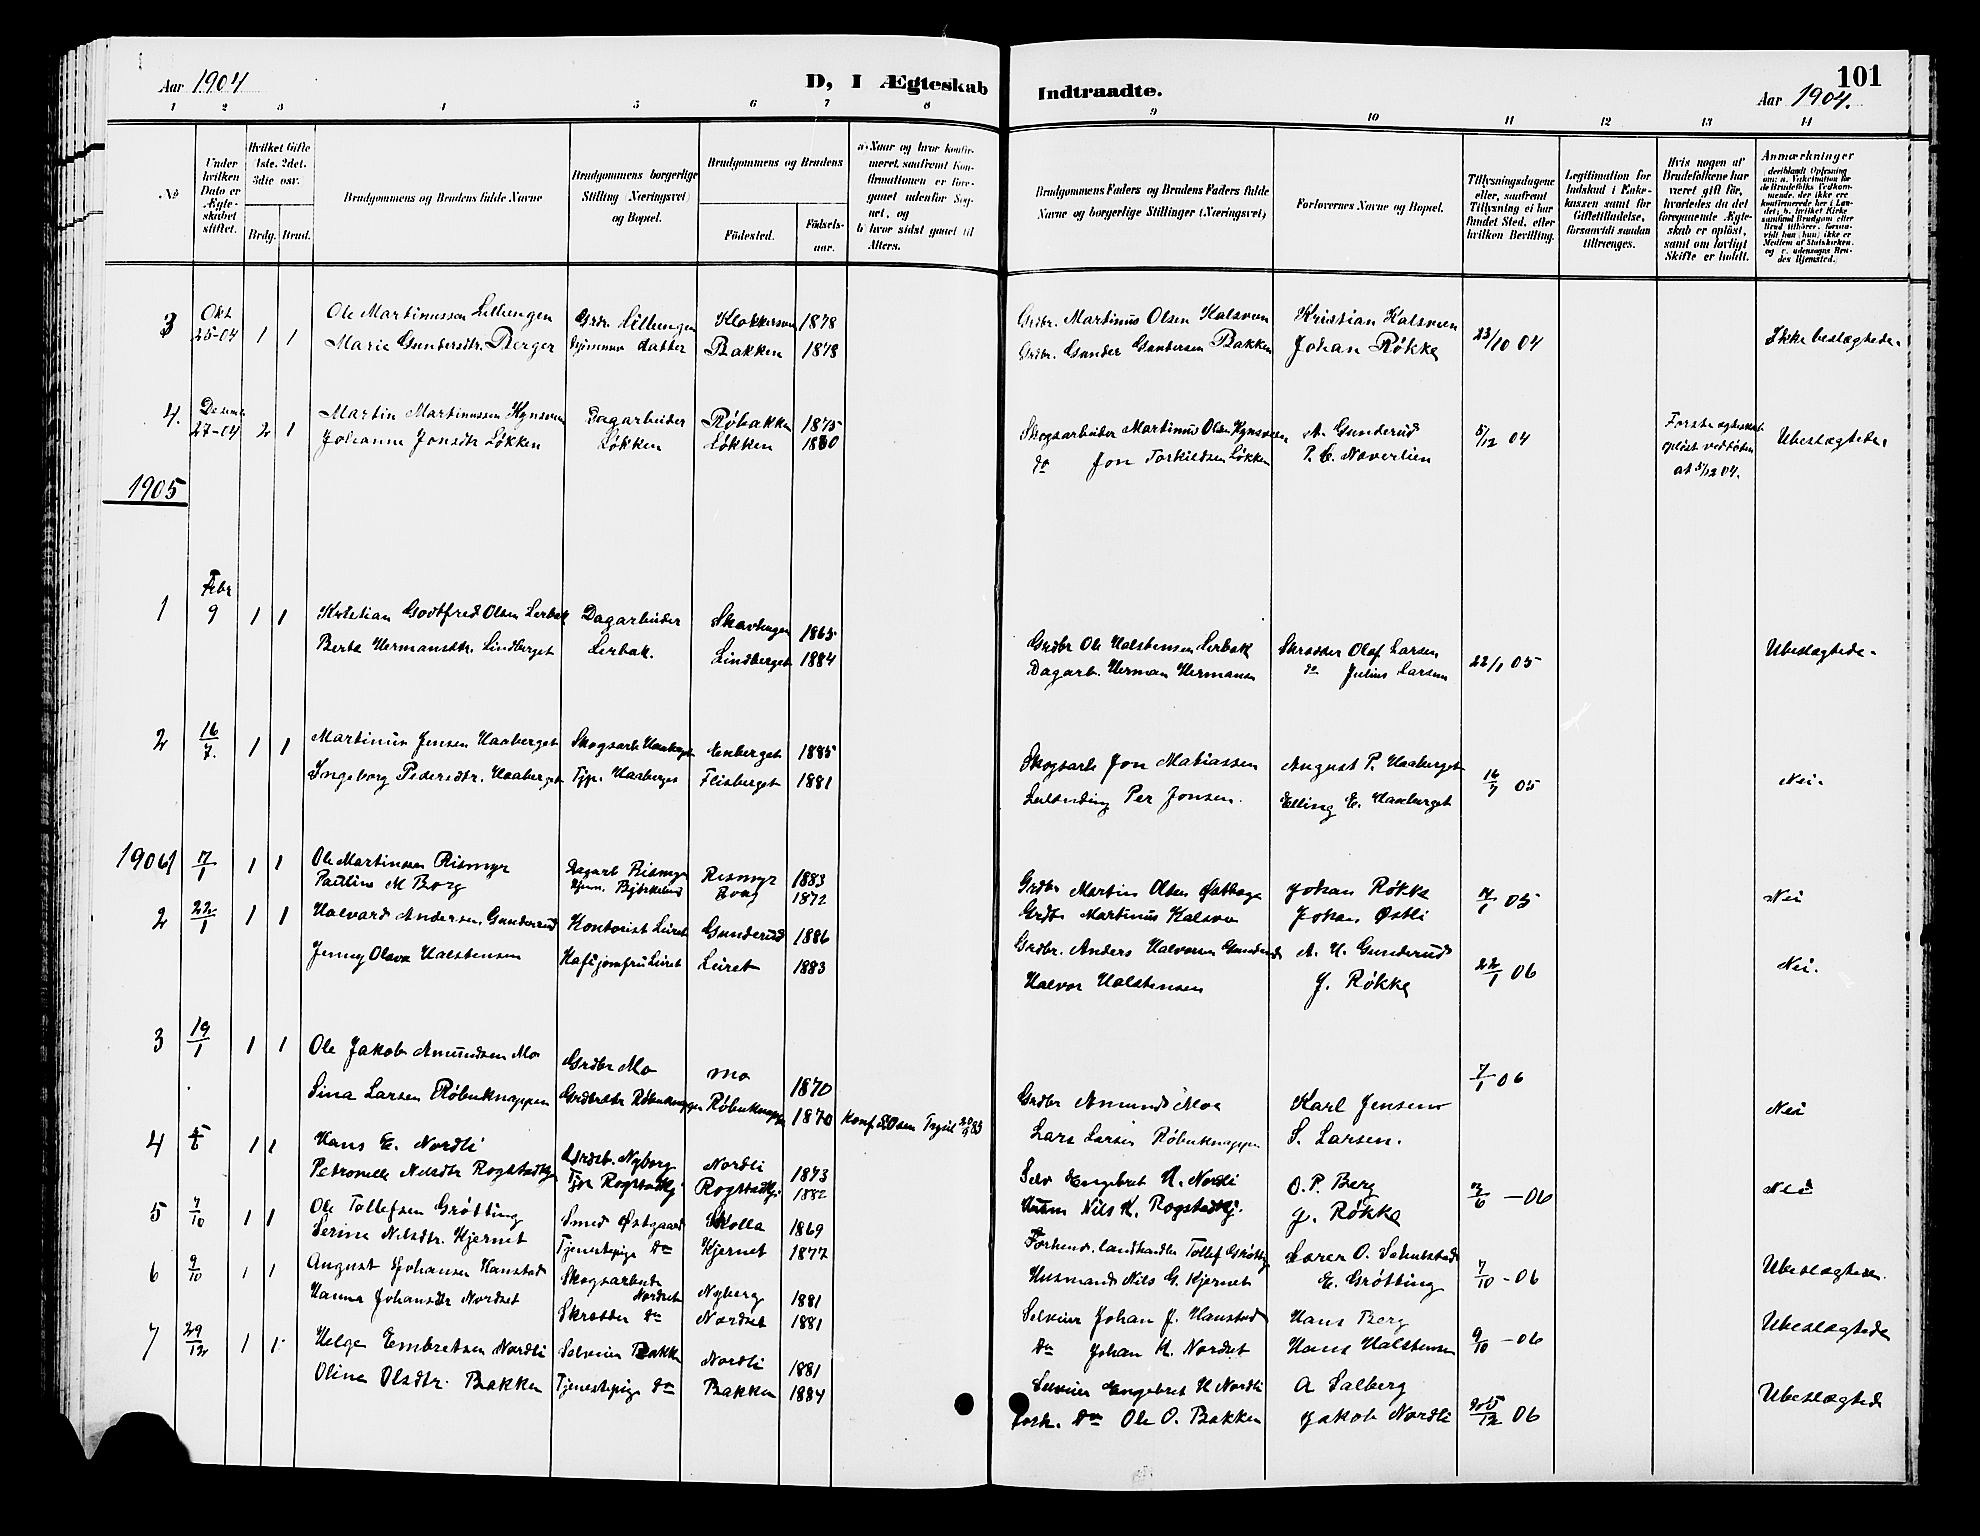 Aar 1904
D, I Ægteskab Indtraadte.
101
Aar 1904.
1 2 3 4 5 6 7 8 9 10 11 12 13 14
No
Under hvilken Dato er Ægteskabet stiftet.
Hvilket Gifte 1ste, 2det, 3die osv.
Brdg. Brud.
Brudgommens og Brudens fulde Navne
Brudgommens borgerlige Stilling (Næringsvei) og Bopæl.
Brudgommens og Brudens
Fødested. Fødselsaar.
a) Naar og hvor konfirmeret, saafremt Konfirmationen er foregaaet udenfor Sognet, og
b) hvor sidst gaaet til Alters.
Brudgommens Faders og Brudens Faders fulde Navne og borgerlige Stillinger (Næringsvei)
Forlovernes Navne og Bopæl.
Tillysningsdagene eller, saafremt Tillysning ei har fundet Sted, efter hvilken Bevilling.
Legitimation for Indskud i Enkekassen samt for Giftetilladelse, forsaavidt saadan tiltrænges.
Hvis nogen af Brudefolkene har været gift før, hvorledes da det foregaaende Ægteskab er opløst, samt om lovligt Skifte er holdt.
Anmærkninger
3 Okt 25-04 1 1 Ole Martinussen Lillungen Grdr. Lillungen 1878 Grdbr. Martinus Olsen Kalsveen Kristian Kalsveen 23/10 04 Ikke beslægtede.
Marie Gundersdtr. Berger datter Bakken 1878 Grdbr. Gunder Gundersen Bakken Johan Røkke
4. 27-04 2 1 Martin Martinussen Kynsveen Dagarbeider Røbakken 1875 Skogsarbeider Martinus Olsen Kynsveen A. Gunderud 5/12 04 Første ægteskab opløst ved døden Ubeslægtede.
Johanne Jonsdtr Løkken Løkken Løkken 1880 do Jon Torkildsen Løkken P. E. Næverlien
1905
1 Febr 9 1 1 Kristian Godtfred Olsen Lerbak Dagarbeider 1865 Grdbr Ole Halstensen Lerbak Skrædder Olaf Larsen 22/1 05 Ubeslægtede.
Berte Hermansdtr. Lindberget Lerbak. Lindberget 1884 Dagarb. Herman Hermansen do Julius Larsen
2 16/7. 1 1 Martinus Jensen Haaberget Skogsarb Haaberget 1885 Skogsarb Jon Matiassen August P. Haaberget 16/7 05 Nei.
Ingeborg Pedersdtr. Haaberget Tjp. Haaberget Flisberget 1881 Per Jonsen. Elling E. Haaberget
1906 1 17/1 1 1 Ole Martinsen Rismyr Dagarb Rismyr Rismyr 1883 Grdbr Martin Olsen Johan Røkke 05 Nei
Pauline M Borg Borg 1872 Grdbr Martinus Kalsveen Johan Østli
2 22/1 1 1 Halvard Andersen Gunderud Kontorist Leiret Gunderud 1886 Grdbr. Anders Halvorsen Gunderud A. H. Gunderud 22/1 06 Nei.
Jenny Olava Halstensen Kafejomfru Leiret Leiret 1883 Halvor Halstensen J. Røkke
3 19/1 1 1 Ole Jakob Amundsen Mo Grdbr Mo Mo 1870 Grdbr Amund Moe Karl Jensen 7/1 06 Nei
Sina Larsen Røbuknappen Røbuknappen 1870 Konf Trysil Lars Larsen Røbuknappen S. Larsen.
4 1 1 Hans E. Nordli Nyborg Nordli 1873 Selv Engebret H. Nordli O. P. Berg -06 Nei
Petronelle Nilsdtr Rogstadkj Tje Rogstadkj Rogstadkj. 1882 Husm Nils K. Rogstadkj. J. Røkke
5 7/10 1 1 Ole Tollefsen Grøtting Smed Østgaard Skolla 1869 landhandler Tollef Grøtting O. 7/10-06 Ubeslægtede.
Serine Nilsdtr. Kjernet Tjenestepige do Kjernet 1877 Husmand Nils G. Kjernet E. Grøtting
6 9/10 1 1 August Johansen Hanstad Skogsarbeide Nordset Nyberg 1881 Selveier Johan J. Hanstad Hans Berg 9/10-06 Ubeslægtede
Hanna Johansdtr Nordset Skrædder do Nordset 1881 do Johan H. Nordset Hans Halstensen
7 29/12 1 1 Helge Embretsen Nordli Selveier Bakken Nordli 1881 Selveier Engebret H Nordli A Salberg 06 Ubeslægtede
Oline Olsdtr. Bakken Tjenestepige do Bakken 1884 do Ole O. Bakken Jakob Nordli